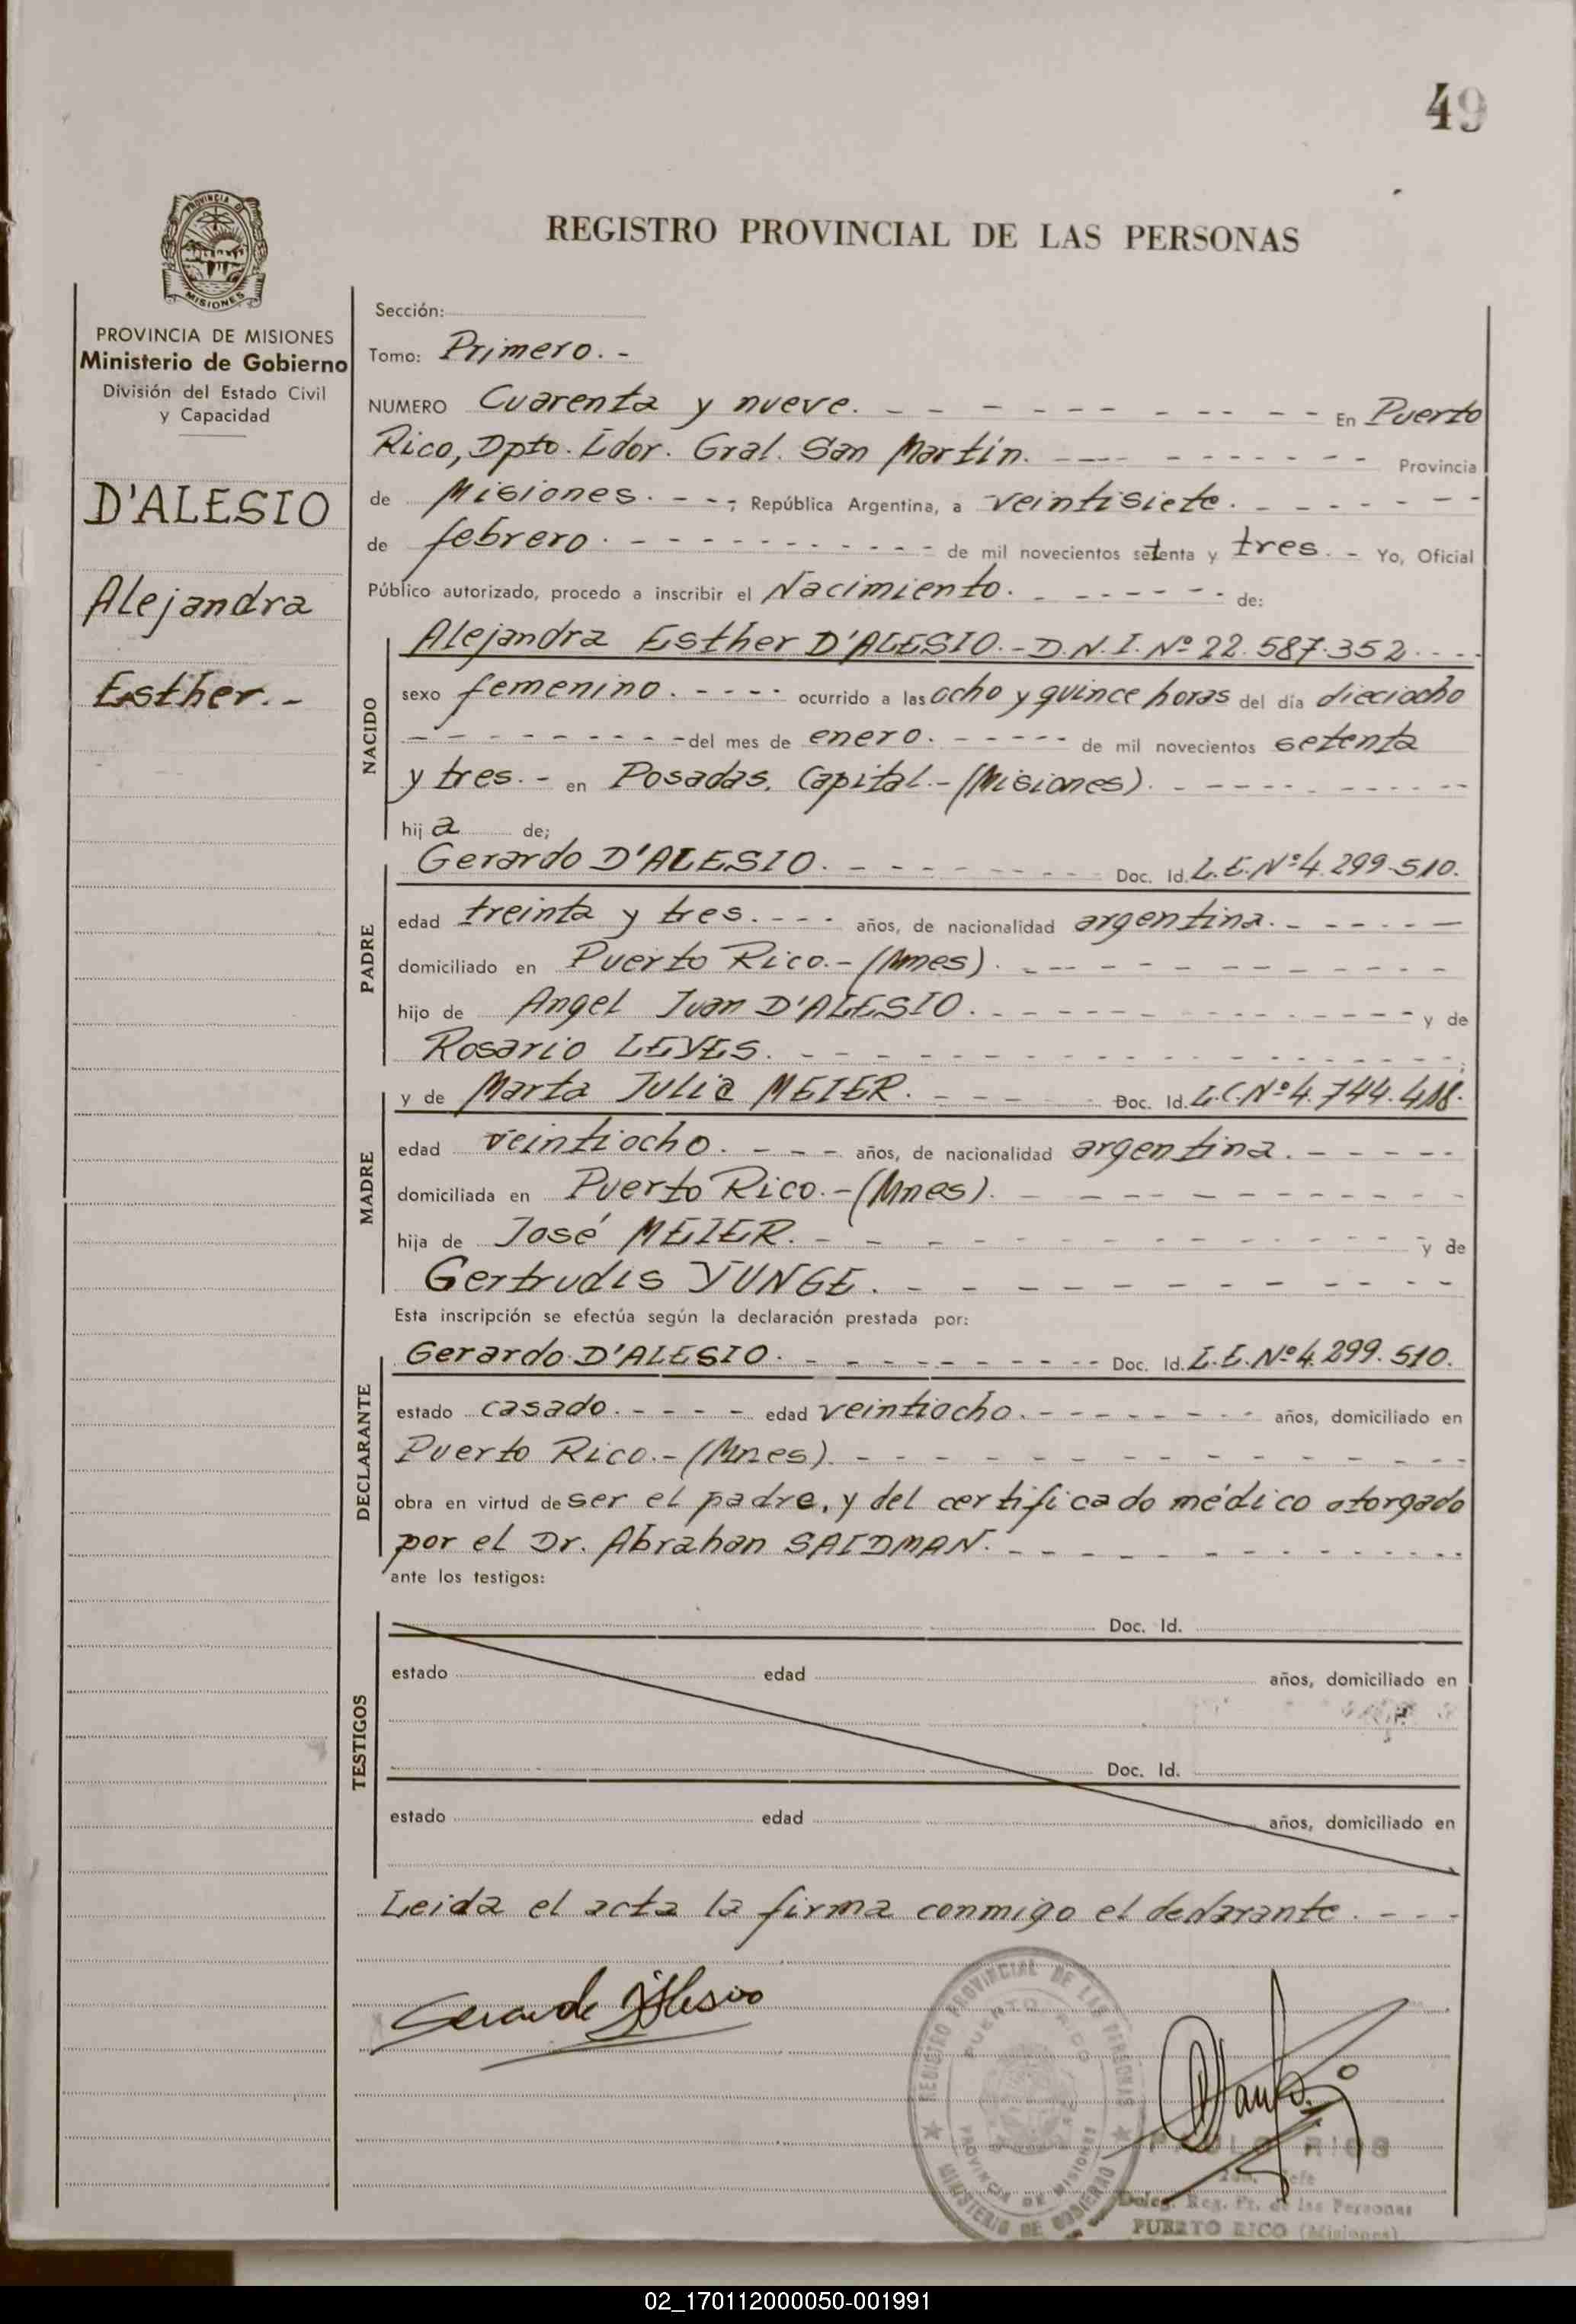 49
PROVINCIA DE
MISIONES
REGISTRO PROVINCIAL DE LAS PERSONAS
PROVINCIA DE MISIONES
Ministerio de Gobierno
División del Estado Civil
y Capacidad
D'ALESIO
Alejandra
Esther.-
Sección:
Tomo: Primero.-
NUMERO Cuarenta y nueve. - - - - - - - - - - - En Puerto
Rico, Dpto. Ldor. Gral. San Martín. - - - - - - - - - Provincia
de Misiones. - - -; República Argentina, a veintisiete. - - - - - -
de febrero. - - - - - - - - - - - - de mil novecientos setenta y tres. - Yo, Oficial
Público autorizado, procedo a inscribir el Nacimiento. - - - - - - - de:
NACIDO
Alejandra Esther D'ALESIO.- D.N.I. Nº 22.587.352. - - -
sexo femenino. - - - - ocurrido a las ocho y quince horas del día dieciocho
- - - - - - - - - - del mes de enero. - - - - - de mil novecientos setenta
y tres. - en Posadas, Capital.- (Misiones). - - - - - - - - - -
hija de;
PADRE
Gerardo D'ALESIO. - - - - - - - - - Doc. Id. L.E. Nº 4.299.510.
edad treinta y tres. - - - años, de nacionalidad argentina. - - - - - -
domiciliado en Puerto Rico.- (Mnes). - - - - - - - - - - - -
hijo de Angel Juan D'ALESIO. - - - - - - - - - - - - - - y de
Rosario LEYES. - - - - - - - - - - - - - - - - ;
MADRE
y de Marta Julia MEIER. - - - - - Doc. Id. L.C. Nº 4.744.418.
edad veintiocho. - - - - años, de nacionalidad argentina. - - - - -
domiciliada en Puerto Rico.- (Mnes). - - - - - - - - - - -
hija de José MEIER. - - - - - - - - - - - - - - y de
Gertrudis YUNGE. - - - - - - - - - - - -
Esta inscripción se efectúa según la declaración prestada por:
DECLARANTE
Gerardo D'ALESIO. - - - - - - - - - Doc. Id. L.E. Nº 4.299.510.
estado casado. - - - - edad veintiocho. - - - - - - - - años, domiciliado en
Puerto Rico.- (Mnes). - - - - - - - - - - - - - - -
obra en virtud de ser el padre, y del certificado médico otorgado
por el Dr. Abrahan SAIDMAN. - - - - - - - - - - - - -
ante los testigos:
TESTIGOS
Doc. Id.
estado edad años, domiciliado en
Doc. Id.
estado edad años, domiciliado en
Leida el acta la firma conmigo el declarante. - - -
Gerardo D'Alesio
REGISTRO PROVINCIAL DE LAS PERSONAS
PUERTO RICO
PROVINCIA DE MISIONES
MINISTERIO DE GOBIERNO
RIOS
Deleg. Reg. Pr. de las Personas
PUERTO RICO (Misiones)
02_170112000050-001991